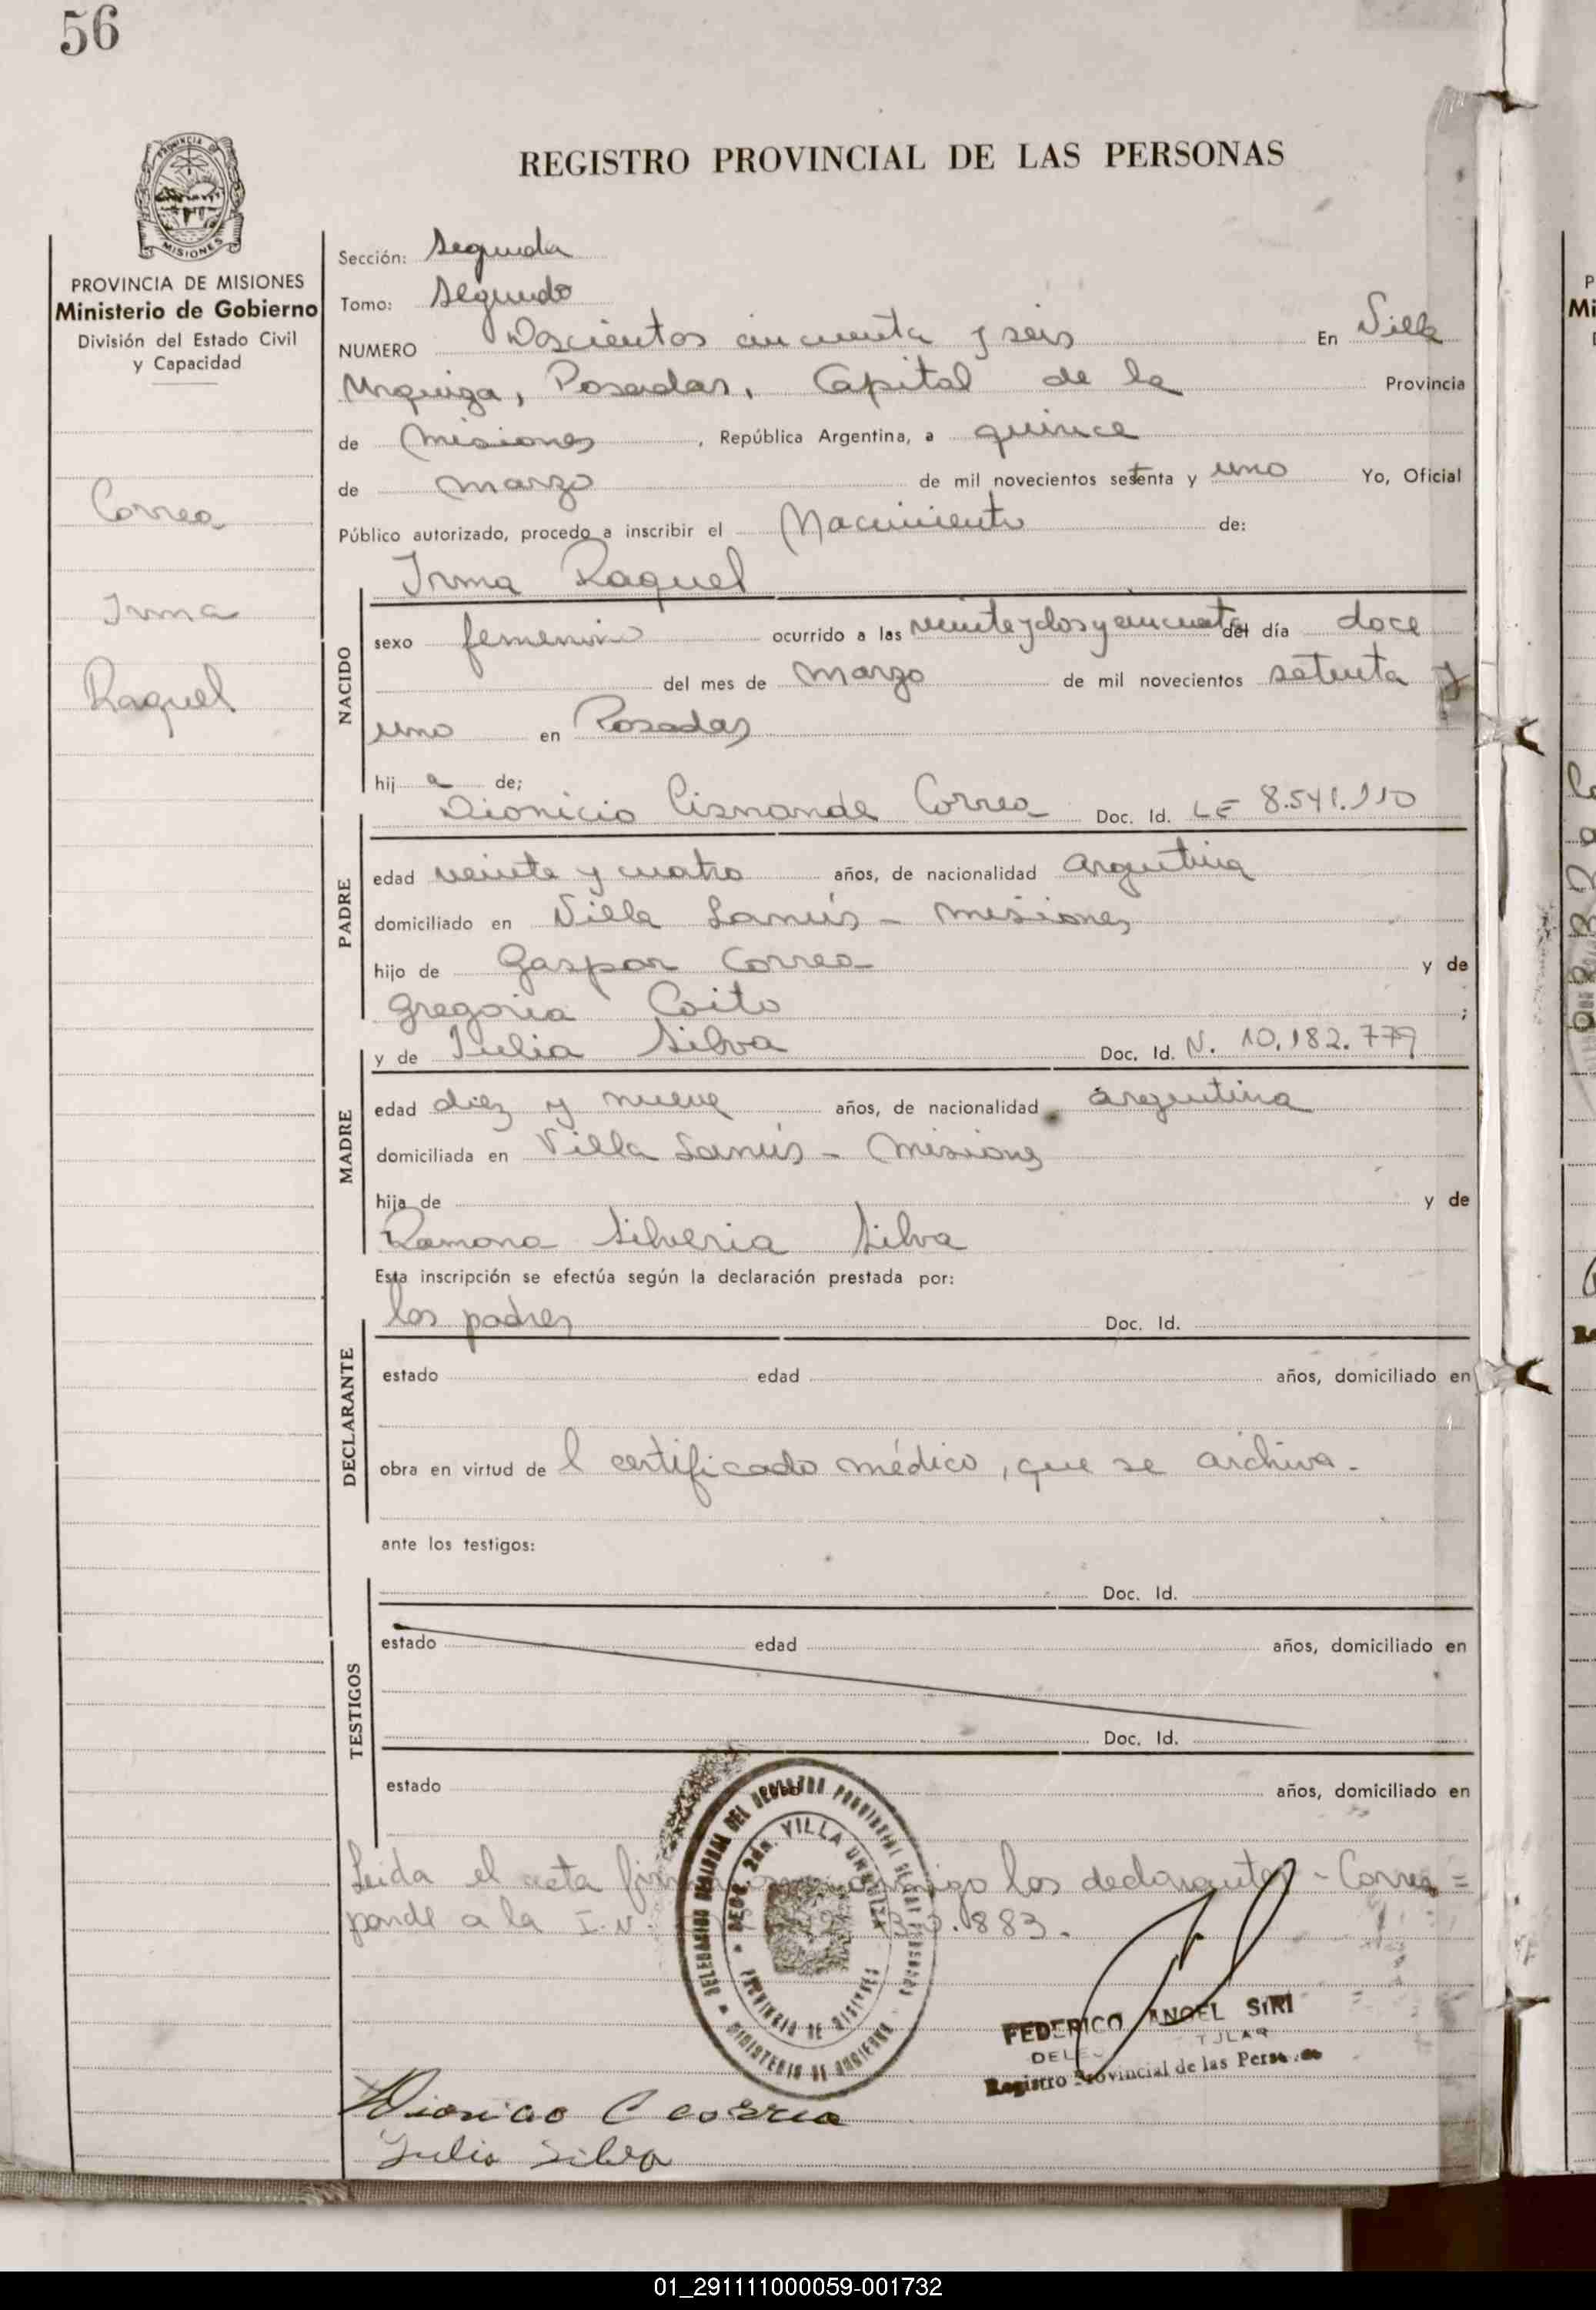 56
REGISTRO PROVINCIAL DE LAS PERSONAS
PROVINCIA DE
MISIONES
PROVINCIA DE MISIONES
Ministerio de Gobierno
División del Estado Civil
y Capacidad
Correa
Irma
Raquel
Sección: Segunda
Tomo: Segundo
NUMERO Doscientos cincuenta y seis En Villa
Urquiza, Posadas, Capital de la Provincia
de Misiones, República Argentina, a quince
de marzo de mil novecientos setenta y uno Yo, Oficial
Público autorizado, procedo a inscribir el Nacimiento de:
Irma Raquel
NACIDO
sexo femenino ocurrido a las veinte y dos y cincuenta del día doce
del mes de marzo de mil novecientos setenta y
uno en Posadas
hij a de;
Dionicio Cisnande Correa Doc. Id. LE 8.541.110
PADRE
edad veinte y cuatro años, de nacionalidad argentina
domiciliado en Villa Lanús - Misiones
hijo de Gaspar Correa y de
Gregoria Coito ;
y de Julia Silva Doc. Id. N. 10.182.779
MADRE
edad diez y nueve años, de nacionalidad argentina
domiciliada en Villa Lanús - Misiones
hija de y de
Ramona Silveria Silva
Esta inscripción se efectúa según la declaración prestada por:
los padres Doc. Id.
DECLARANTE
estado edad años, domiciliado en
obra en virtud de l certificado médico, que se archiva.-
ante los testigos:
Doc. Id.
TESTIGOS
estado edad años, domiciliado en
Doc. Id.
estado años, domiciliado en
Leida el acta los declarantes - Corres=
ponde a la I.N. .883.-
DELEGACION DEL REGISTRO PROVINCIAL DE LAS PERSONAS
MINISTERIO DE GOBIERNO
SECC. 2da. VILLA URQUIZA
PROVINCIA DE MISIONES
FEDERICO ANGEL SIRI
Registro Provincial de las Personas
Dionicio C Correa
Julia Silva
01_291111000059-001732